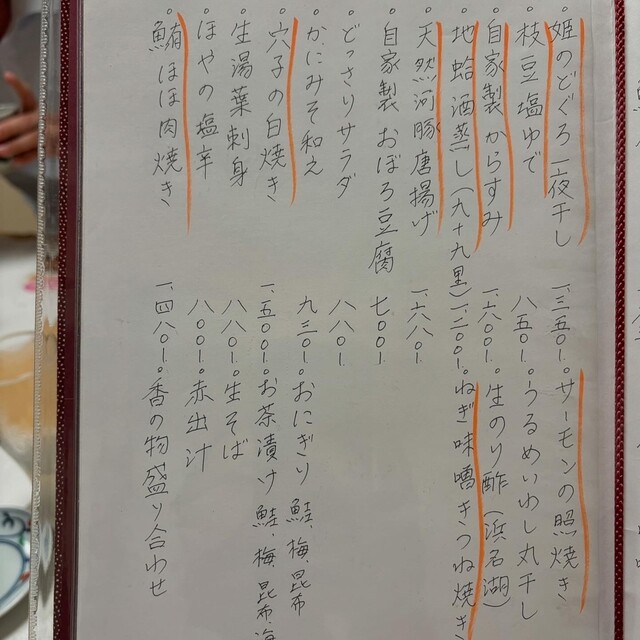 。姫のどぐろ一夜干し 一、三五〇-
。枝豆塩ゆで 八五〇-
。自家製からすみ 一、六〇〇-
。地蛤酒蒸し(九十九里) 一、二〇〇-
。天然河豚唐揚げ 一、六八〇-
。自家製おぼろ豆腐 七〇〇-
。どっさりサラダ 八八〇-
。かにみそ和え 九三〇-
。穴子の白焼き 一、五〇〇-
。生湯葉刺身 八八〇-
。ほやの塩辛 八〇〇-
。鮪ほほ肉焼き 一、四八〇-
。サーモンの照焼き
。うるめいわし丸干し
。生のり酢(浜名湖)
。ねぎ味噌きつね焼き
。おにぎり 鮭、梅、昆布
。お茶漬け 鮭、梅、昆布、海
。生そば
。赤出汁
。香の物盛り合わせ